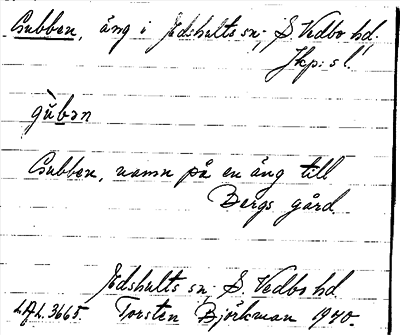 Gubben, äng i Edshults sn; S. Vedbo hd.
Jkp:s l.
gùbən
Gubben, namn på en äng till
Bergs gård.
Edshults sn; S. Vedbo hd
L.A.L. 3665. Torsten Björkman 1940.